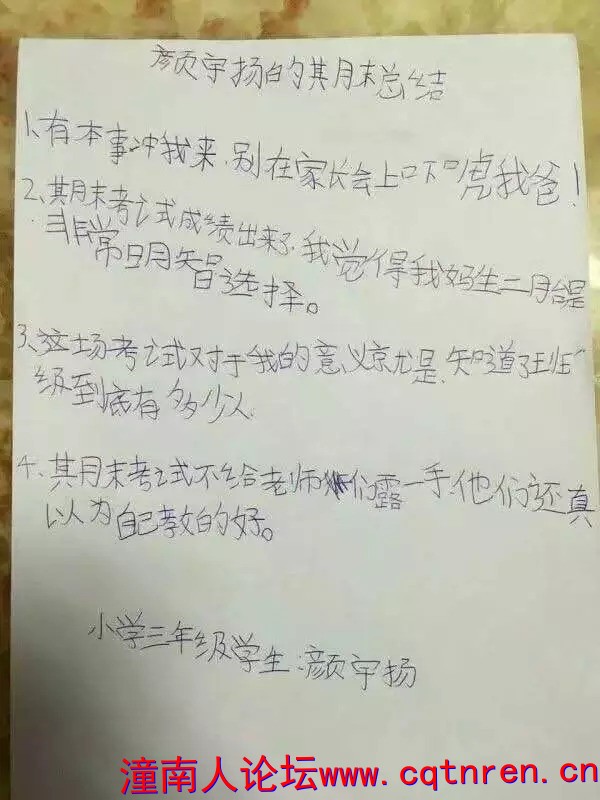 颜宇扬的期末总结
1、有本事冲我来,别在家长会上吓唬我爸!
2、期末考试成绩出来了,我觉得我妈生二胎是
非常明智选择。
3、这场考试对于我的意义就是,知道了班
级到底有多少人
4、期末考试不给老师们露一手,他们还真
以为自己教的好。
小学三年级学生:颜宇扬
潼南人论坛www.cqtnren.cn